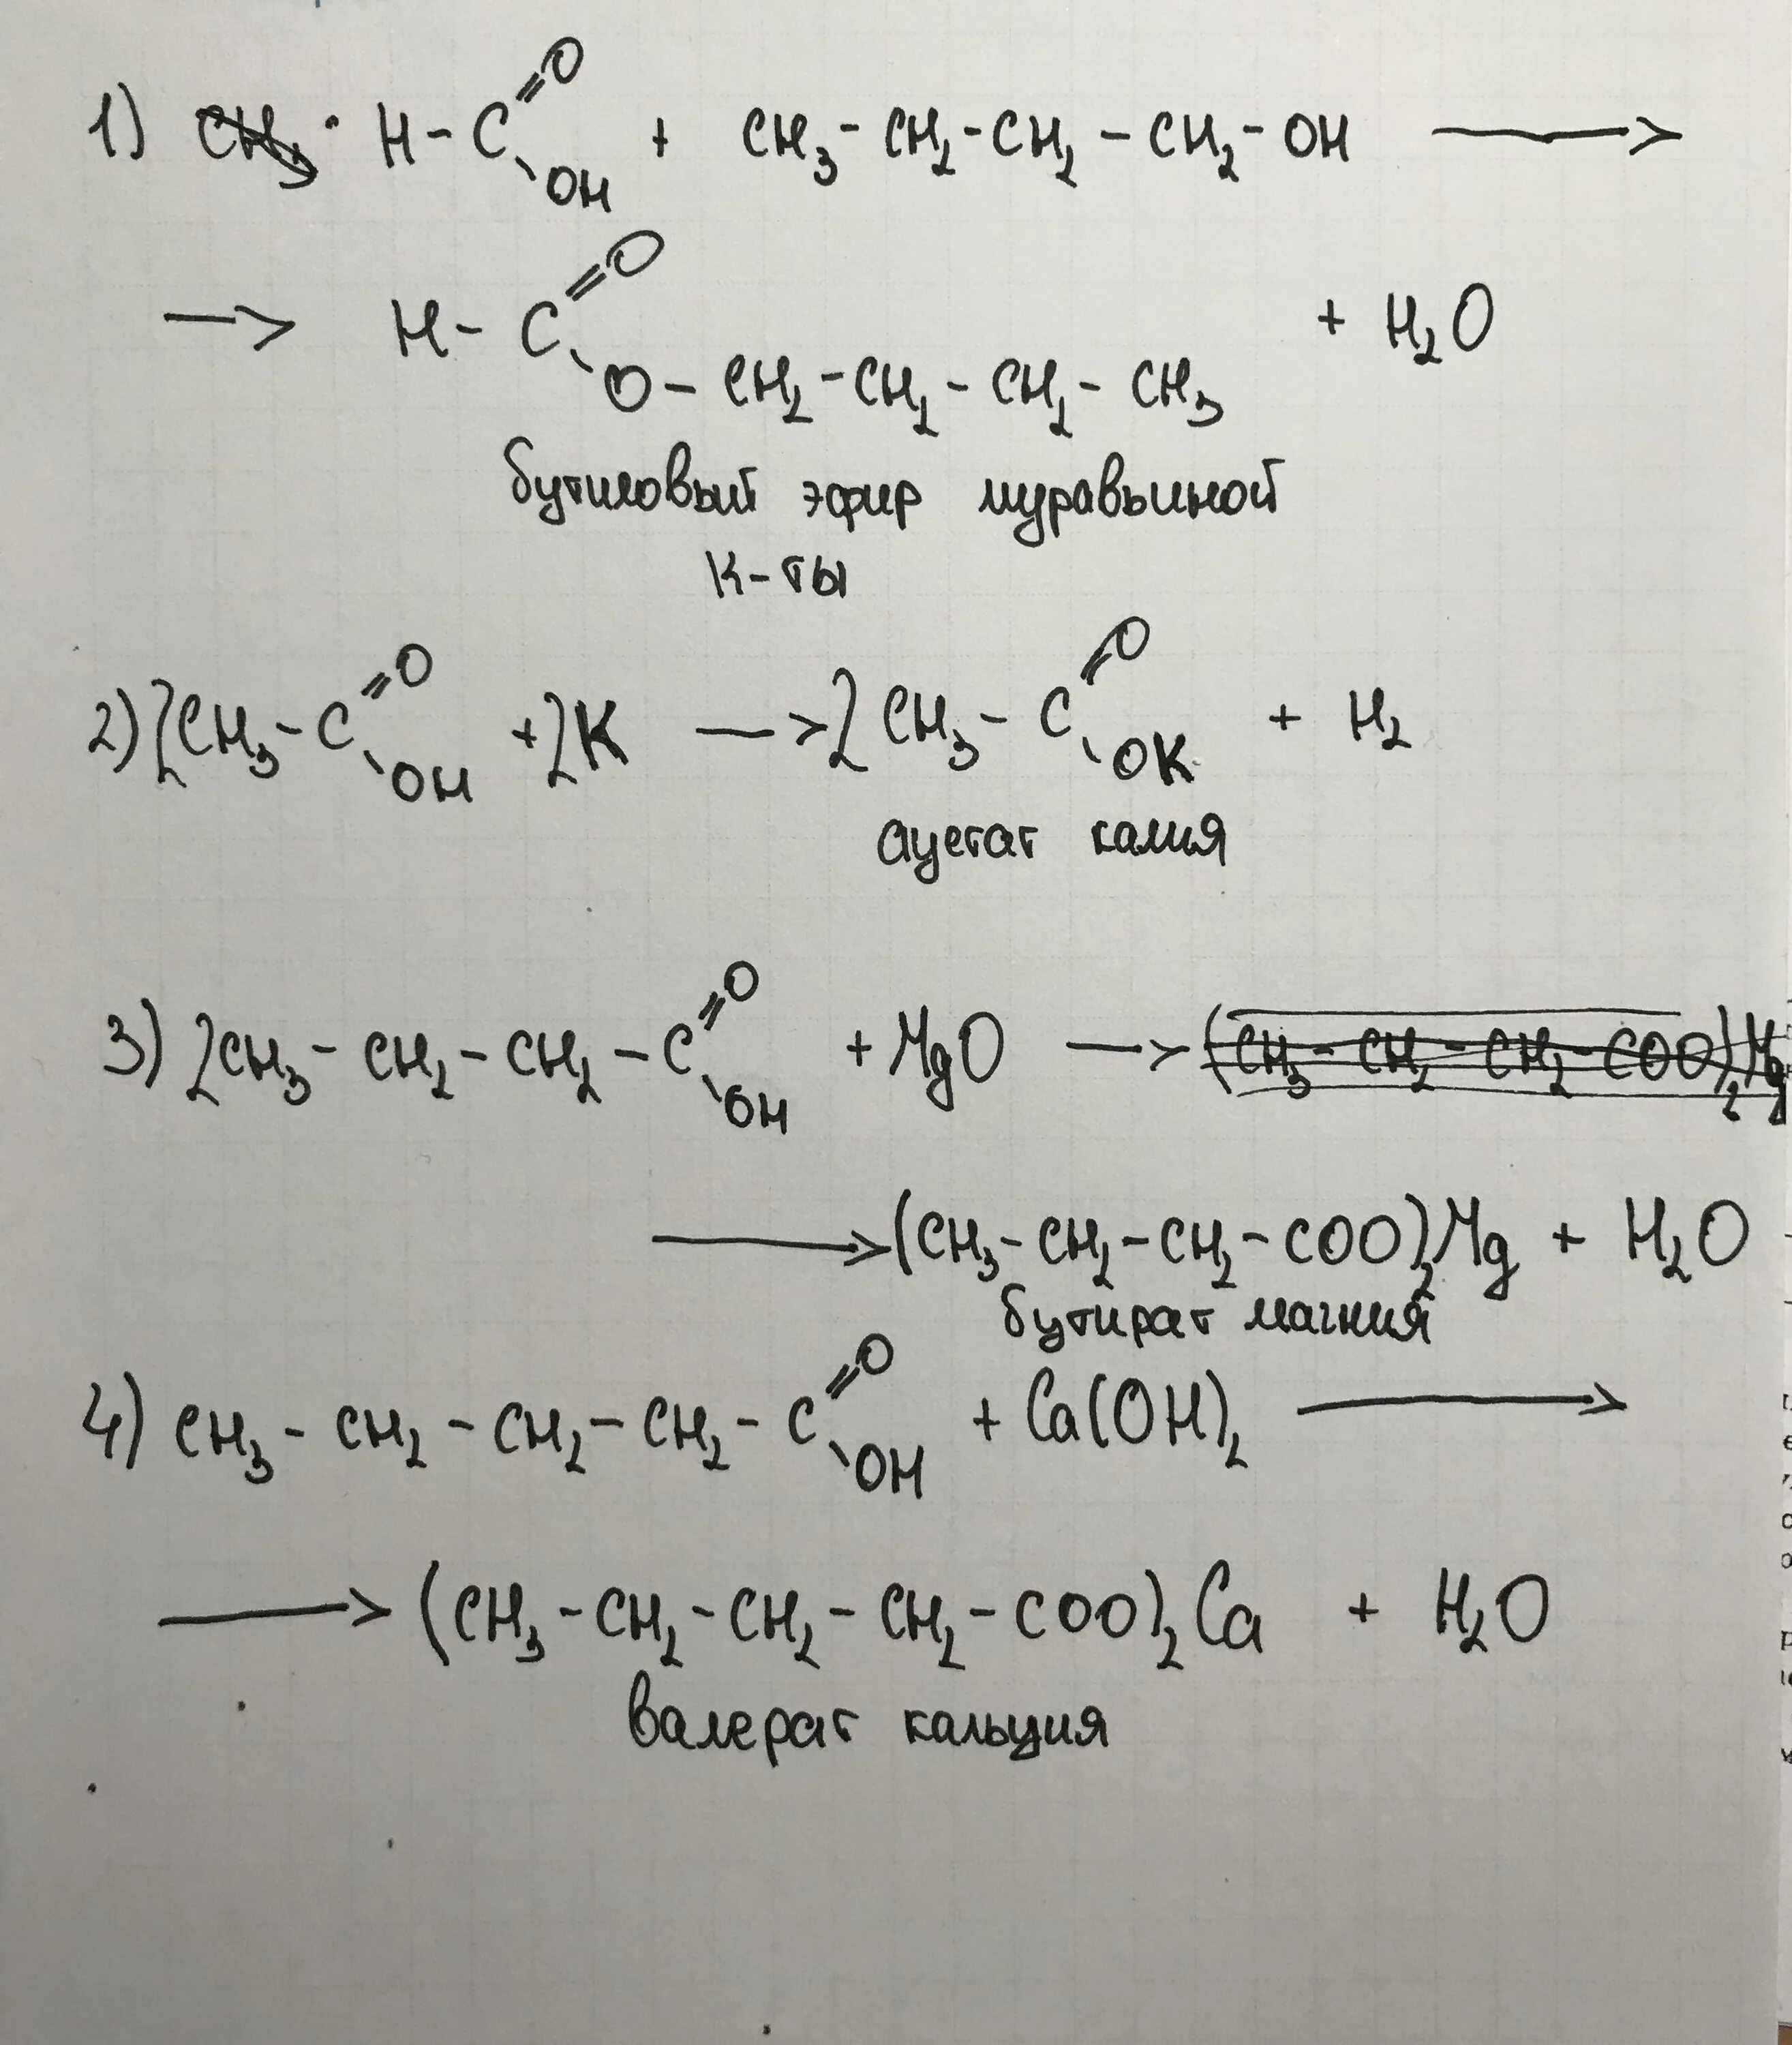 1) CH₃ · H-C=O OH + CH₃-CH₂-CH₂-CH₂-OH →
→ H-C=O O-CH₂-CH₂-CH₂-CH₃ + H₂O
бутиловый эфир муравьиной
к-ты
2) 2CH₃-C=O OH + 2K → 2CH₃-C=O OK + H₂
ацетат калия
3) 2CH₃-CH₂-CH₂-C=O OH + MgO → (CH₃-CH₂-CH₂-COO)₂Mg
→ (CH₃-CH₂-CH₂-COO)₂Mg + H₂O
бутират магния
4) CH₃-CH₂-CH₂-CH₂-C=O OH + Ca(OH)₂ →
→ (CH₃-CH₂-CH₂-CH₂-COO)₂Ca + H₂O
валерат кальция